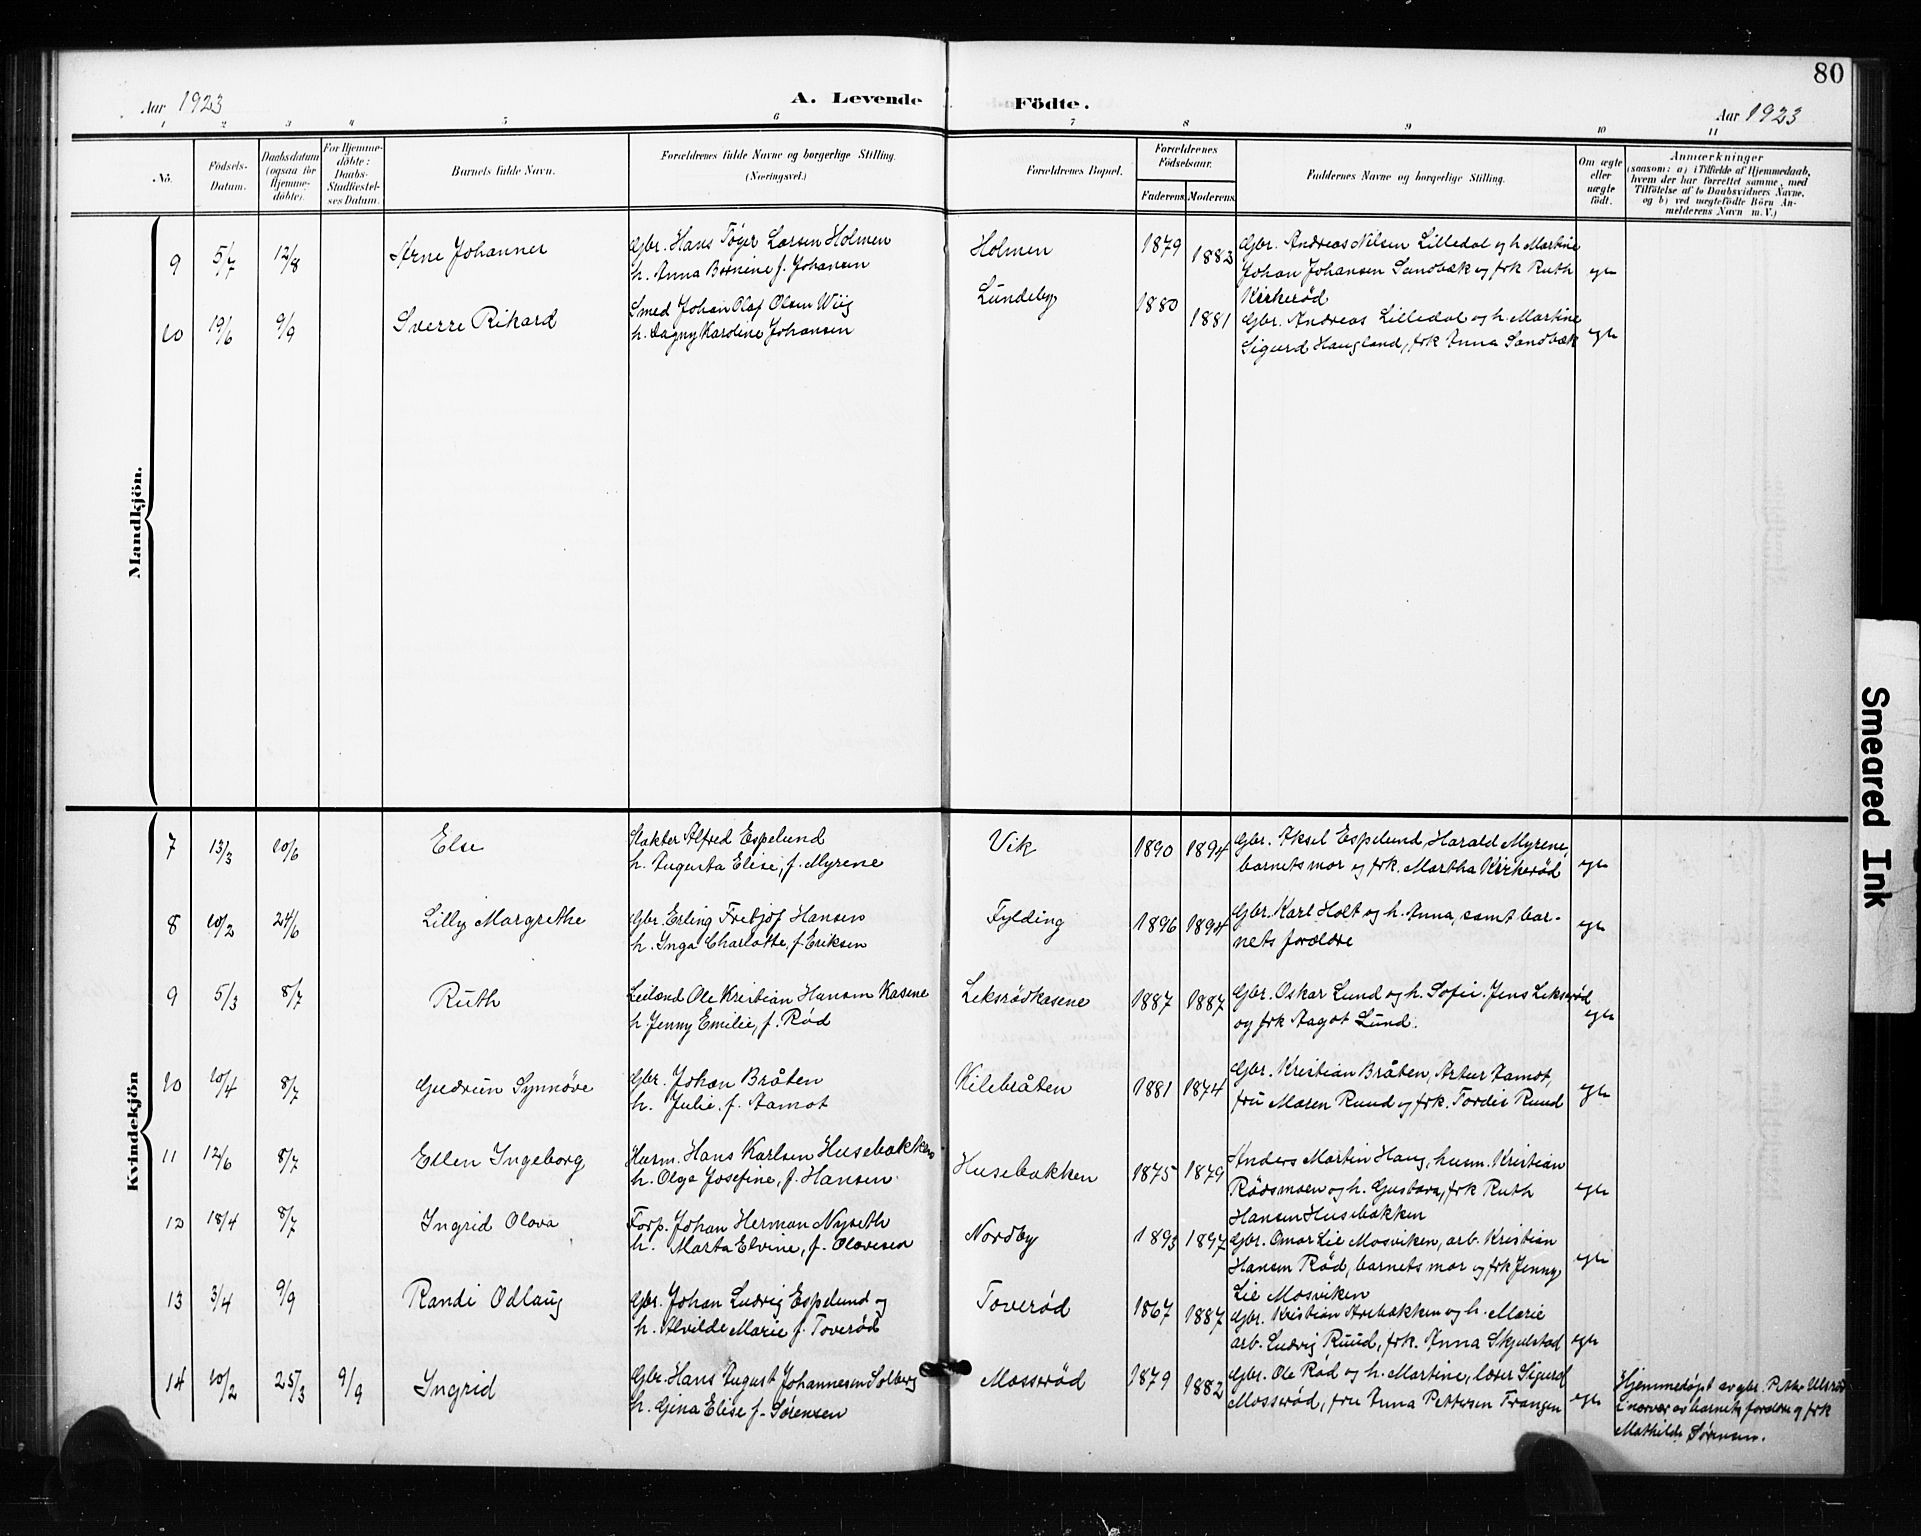 80
Aar 1923
A. Levende Födte.
Aar 1923
1 2 3 4 5 6 7 8 9 10 11
No.
Födsels-
Datum.
Daabsdatum
(ogsaa for
Hjemme-
döbte).
For Hjemme-
döbte:
Daabs-
Stadfæstel-
ses Datum.
Barnets fulde Navn.
Forældrenes fulde Navne og borgerlige Stilling.
(Næringsvei.)
Forældrenes Bopæl.
Forældrenes
Födselsaar.
Faderens. Moderens.
Faddernes Navne og borgerlige Stilling.
Om ægte
eller
uægte
födt.
Anmærkninger
(saasom: a) i Tilfælde af Hjemmedaab,
hvem der har forrettet samme, med
Tilföielse af to Daabsvidners Navne,
og b) ved uægtefödte Börn An-
melderens Navn m. V.)
Mandkjön.
9 5/7 12/8 Arne Johannes
Gbr. Hans Töger Larsen Holmen
h. Anna Bernine f. Johansen
Holmen 1879 1883
Gbr. Andreas Nilsen Lilledal og h. Martine
Johan Johansen Sandbæk og frk Ruth
Kirkerød
egte
10 19/6 9/9 Sverre Rikard
Smed Johan Olaf Olsen Wiig
h. Dagny Karoline Johansen
Lundeby 1880 1881
Gbr. Andreas Lilledal og h. Martine
Sigurd Haugland, frk Anna Sandbæk
egte
Kvindekjön
7 13/3 10/6 Else
Slakter Alfred Espelund
h. Augusta Elise, f. Myrene
Vik 1890 1894
Gbr. Aksel Espelund, Harald Myrene,
barnets mor og frk. Martha Kirkerød
egte
8 10/2 24/6 Lilly Margrethe
Gbr Erling Fritjof Hansen
h. Inga Charlotte, f Eriksen
Fylding 1896 1894
Gbr. Karl Holt og h. Anna, samt bar-
nets forældre
egte
9 5/3 8/7 Ruth
Leilænd Ole Kristian Hansen Kasene
h. Jenny Emilie, f. Rød
Leksrödkasene 1887 1887
Gbr. Oskar Lund og h. Sofie. Jens Leksrød
og frk Aagot Lund.
egte
10 10/4 8/7 Gudrun Synnöve
Gbr. Johan Bråten
h. Julie. f. Aamot
Kilebråten 1881 1874
Gbr. Kristian Bråten, Artur Aamot,
fru Maren Ruud og frk. Tordis Ruud
egte
11 12/6 8/7 Ellen Ingeborg
Husm. Hans Karlsen Husebakken
h. Olga Josefine, f. Hansen
Husebakken 1875 1879
Anders Martin Haug, husm. Kristian
Rödsmoen og h. Gustava, frk Ruth
Hansen Husebakken
egte
12 18/4 8/7 Ingrid Olava
Forp. Johan Herman Nyseth
h. Marta Elvine, f. Olavesen
Nordby 1893 1897
Gbr. Omar Lie Mosviken, arb. Kristian
Hansen Rød, barnets mor og frk Jenny
Lie Mosviken
egte
13 3/4 9/9 Randi Odlaug
Gbr. Johan Ludvig Espelund og
h. Alvilde Marie f. Toverød
Toverød 1867 1887
Gbr. Kristian Arebakken og h. Marie
arb. Ludvig Ruud, frk. Anna Skjelstad
egte
14 10/2 25/3 9/9 Ingrid
Gbr. Hans August Johannesen Solberg
h. Gina Elise f. Sørensen
Mosserød 1879 1882
Gbr. Ole Rød og h. Martine, lærer Sigurd
Mosserød, fru Anna Pettersen Frangen
egte
Hjemmedøpt av gbr. Petter
i nærvær av barnets foreldre og frk
Mathilde Sørensen.
Smeared Ink